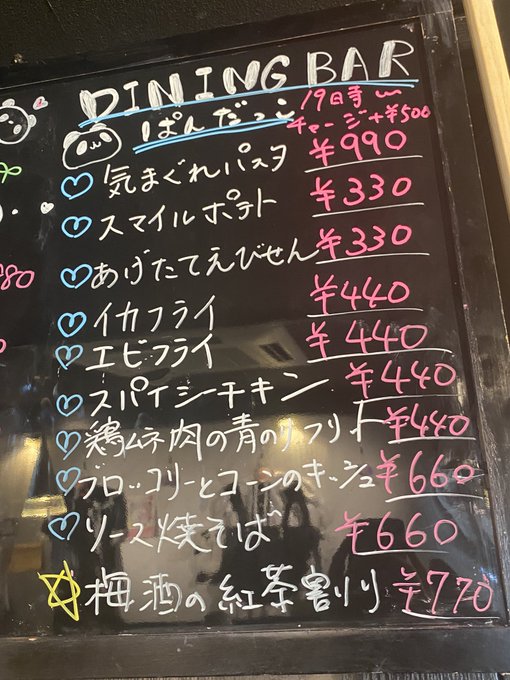 DINING BAR
ぱんだっこ
19時〜
チャージ+¥500
気まぐれパスタ ¥990
スマイルポテト ¥330
あげたてえびせん ¥330
イカフライ ¥440
エビフライ ¥440
スパイシーチキン ¥440
鶏ムネ肉の青のりフリット ¥440
ブロッコリーとコーンのキッシュ ¥660
ソース焼そば ¥660
梅酒の紅茶割り ¥770
80